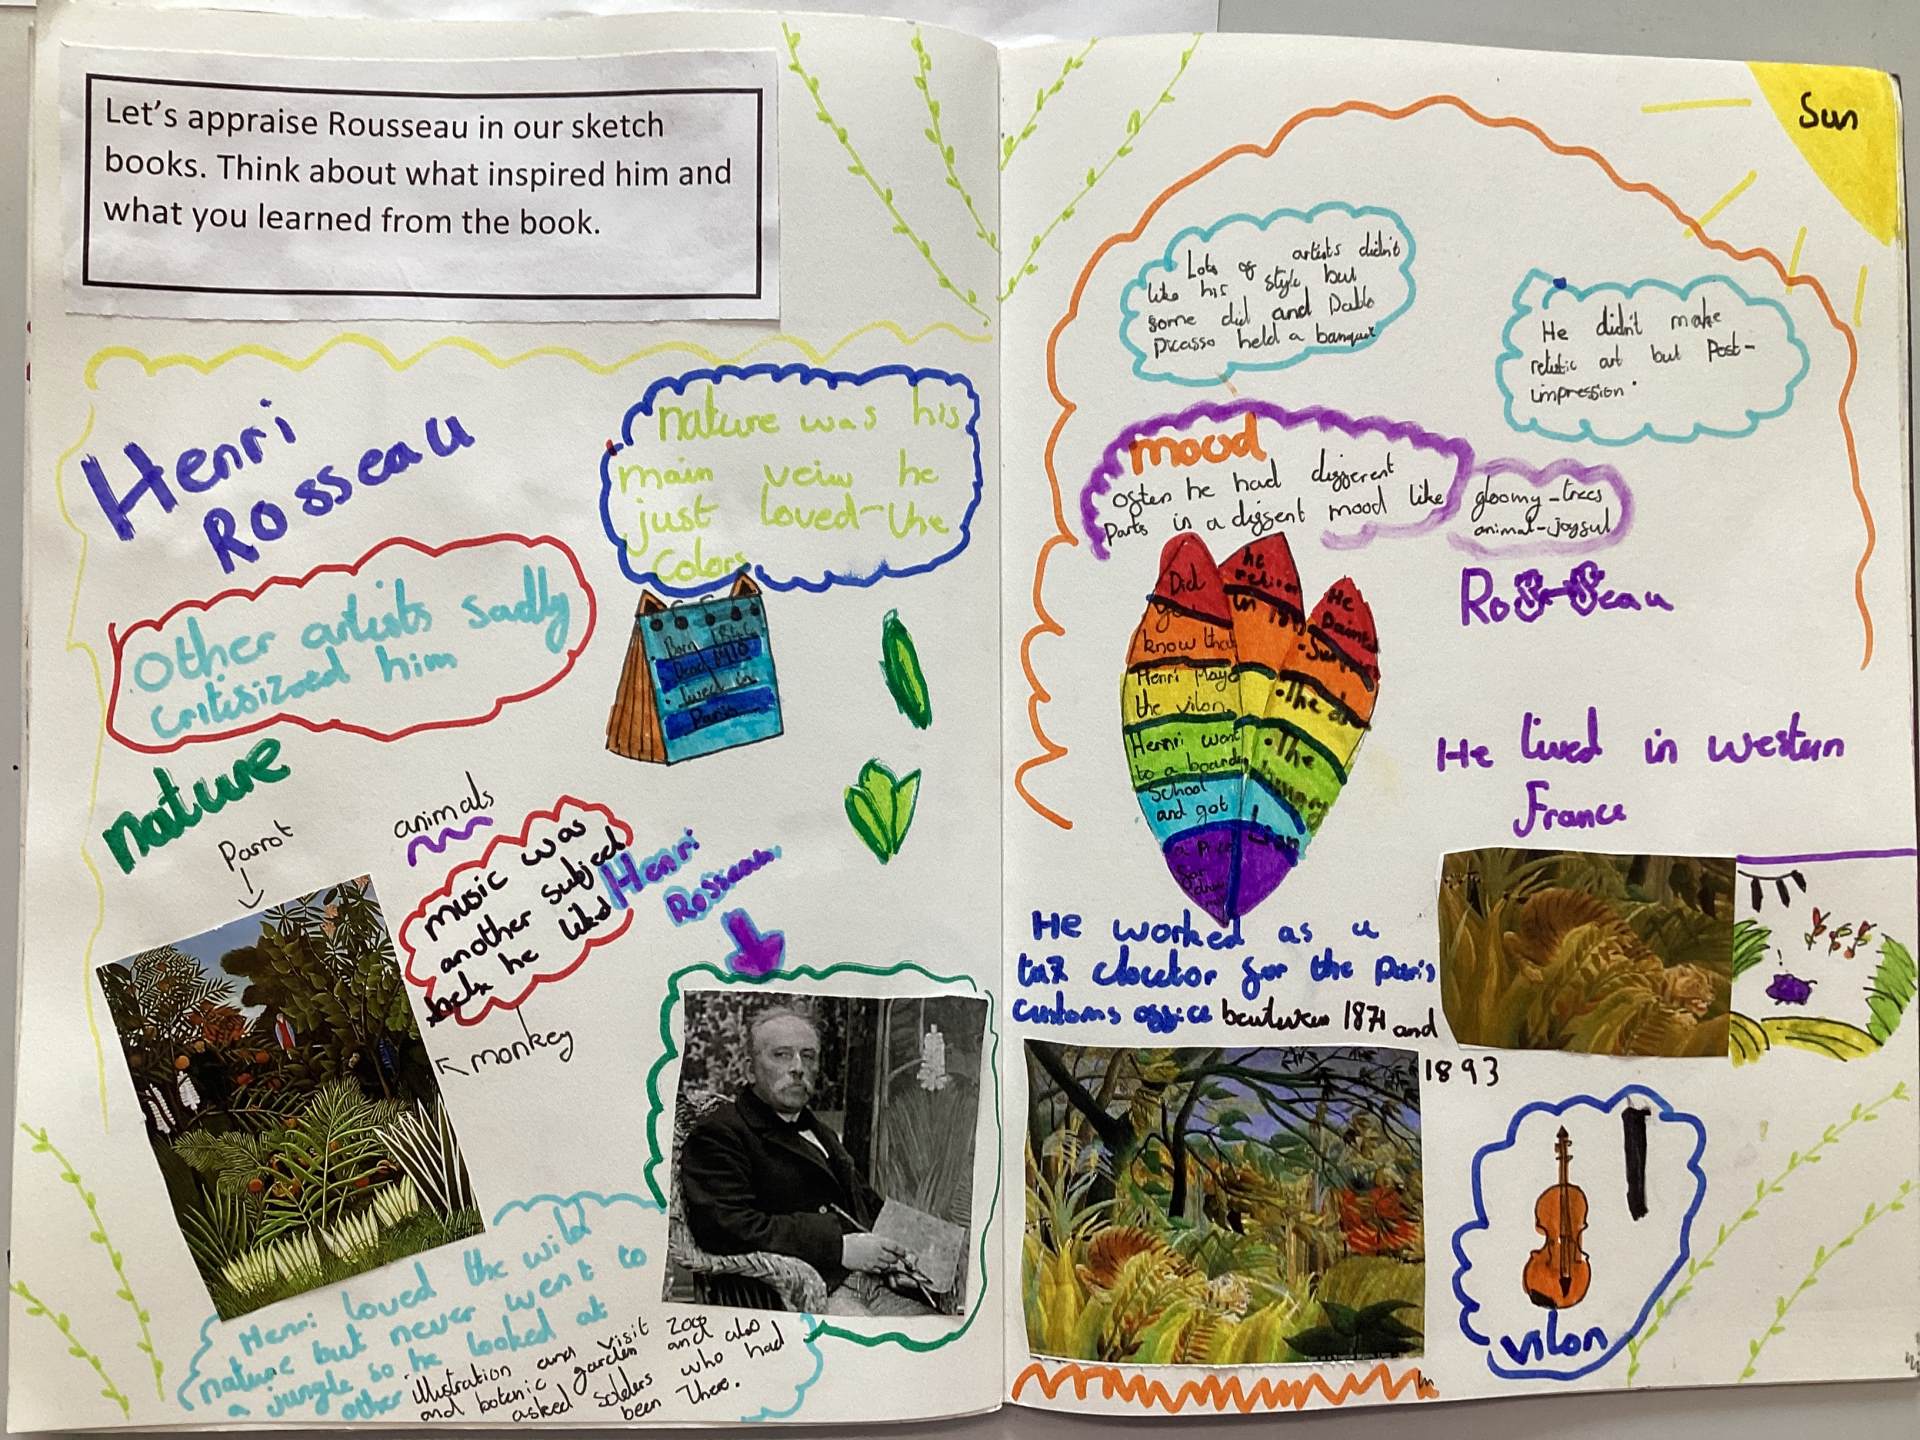 Let's appraise Rousseau in our sketch
books. Think about what inspired him and
what you learned from the book.
Henri
Rosseau
nature was his
main veiw he
just loved-the
colors
other artists sadly
critisized him
Born
Dead
lived in
Paris
nature
Parrot
animals
music was
another subject
he liked
Henri
Rosseau
monkey
Henri loved the wild
nature but never went to
a jungle so he looked at
other illustration and visit zoos
and botenic garden and also
asked solders who had
been there.
Sun
Lots of artists didn't
like his style but
some did and Pablo
Picasso held a banquet
He didn't make
relistic art but Post-
impression.
mood
often he had different
Parts in a diffent mood like
gloomy-trees
animal-joyful
Rosseau
Did
you
know that
Henri Playd
the vilon
Henri went
to a board
School
and got
a
for
he
retire
in
He
Paint
The
The
hungry
Lion
He lived in western
France
He worked as a
tax clocetor for the Paris
customs office beutwen 1871 and
1893
vilon